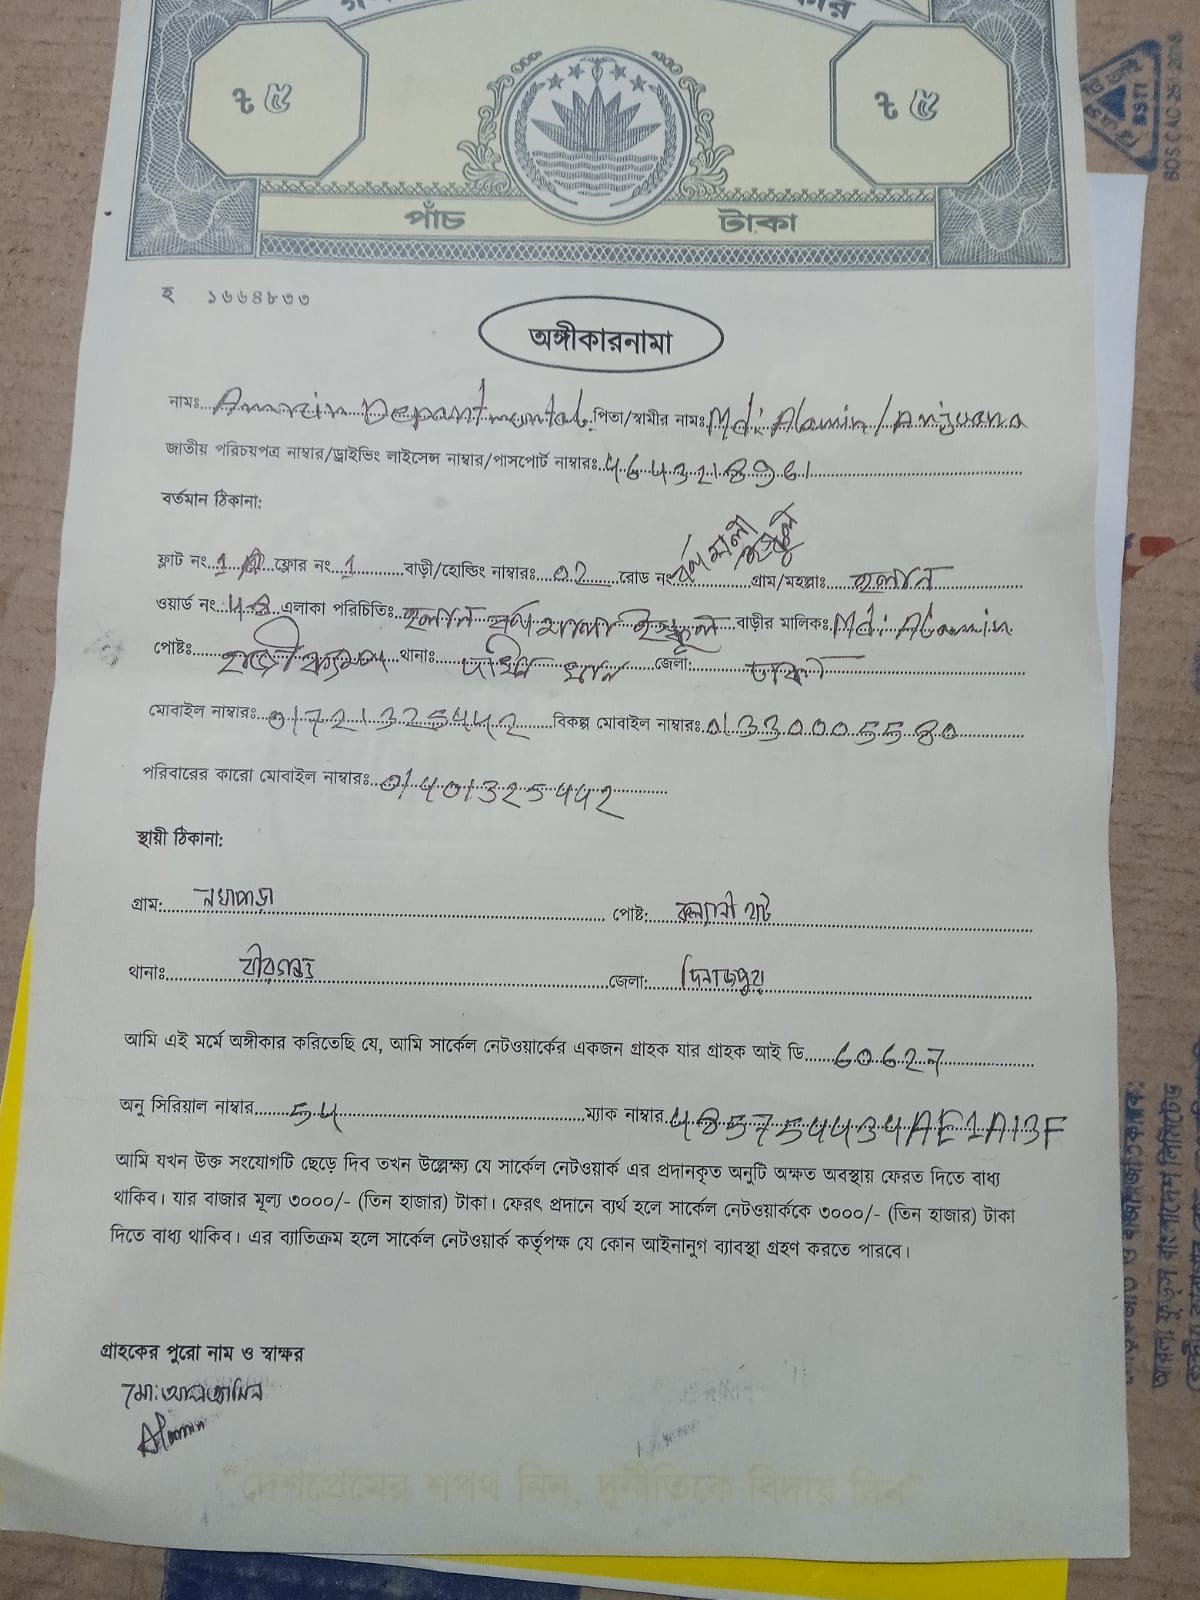 ৳ ৫
৳ ৫
পাঁচ টাকা
হ ১৬৬৪৮৩৩
অঙ্গীকারনামা
নামঃ Amrzin Depantmental পিতা/স্বামীর নামঃ Md: Alamin/Anjuara
জাতীয় পরিচয়পত্র নাম্বার/ড্রাইভিং লাইসেন্স নাম্বার/পাসপোর্ট নাম্বারঃ 4643218961
বর্তমান ঠিকানা:
ফ্লাট নং 1 ফ্লোর নং 1 বাড়ী/হোল্ডিং নাম্বারঃ 02 রোড নং গ্রাম/মহল্লাঃ হলান
ওয়ার্ড নং 48 এলাকা পরিচিতিঃ হলান বর্ণমালা ইস্কুল বাড়ীর মালিকঃ Md: Alamin
পোষ্টঃ থানাঃ দক্ষিন খান জেলা: ঢাকা
মোবাইল নাম্বারঃ 01721325442 বিকল্প মোবাইল নাম্বারঃ 01330005580
পরিবারের কারো মোবাইল নাম্বারঃ 01401325442
স্থায়ী ঠিকানা:
গ্রাম: নয়াপাড়া পোষ্ট: কল্যানী হাট
থানাঃ বীরগঞ্জ জেলা: দিনাজপুর
আমি এই মর্মে অঙ্গীকার করিতেছি যে, আমি সার্কেল নেটওয়ার্কের একজন গ্রাহক যার গ্রাহক আই ডি 60627
অনু সিরিয়াল নাম্বার 54 ম্যাক নাম্বার 485754434AE1A13F
আমি যখন উক্ত সংযোগটি ছেড়ে দিব তখন উল্লেক্ষ্য যে সার্কেল নেটওয়ার্ক এর প্রদানকৃত অনুটি অক্ষত অবস্থায় ফেরত দিতে বাধ্য
থাকিব। যার বাজার মূল্য ৩০০০/- (তিন হাজার) টাকা। ফেরৎ প্রদানে ব্যর্থ হলে সার্কেল নেটওয়ার্ককে ৩০০০/- (তিন হাজার) টাকা
দিতে বাধ্য থাকিব। এর ব্যাতিক্রম হলে সার্কেল নেটওয়ার্ক কর্তৃপক্ষ যে কোন আইনানুগ ব্যাবস্থা গ্রহণ করতে পারবে।
গ্রাহকের পুরো নাম ও স্বাক্ষর
মো: আলআমিন
Alamin
"দেশপ্রেমের শপথ নিন, দুর্নীতিকে বিদায় দিন"
BSTI
BDS CAC 26:2018